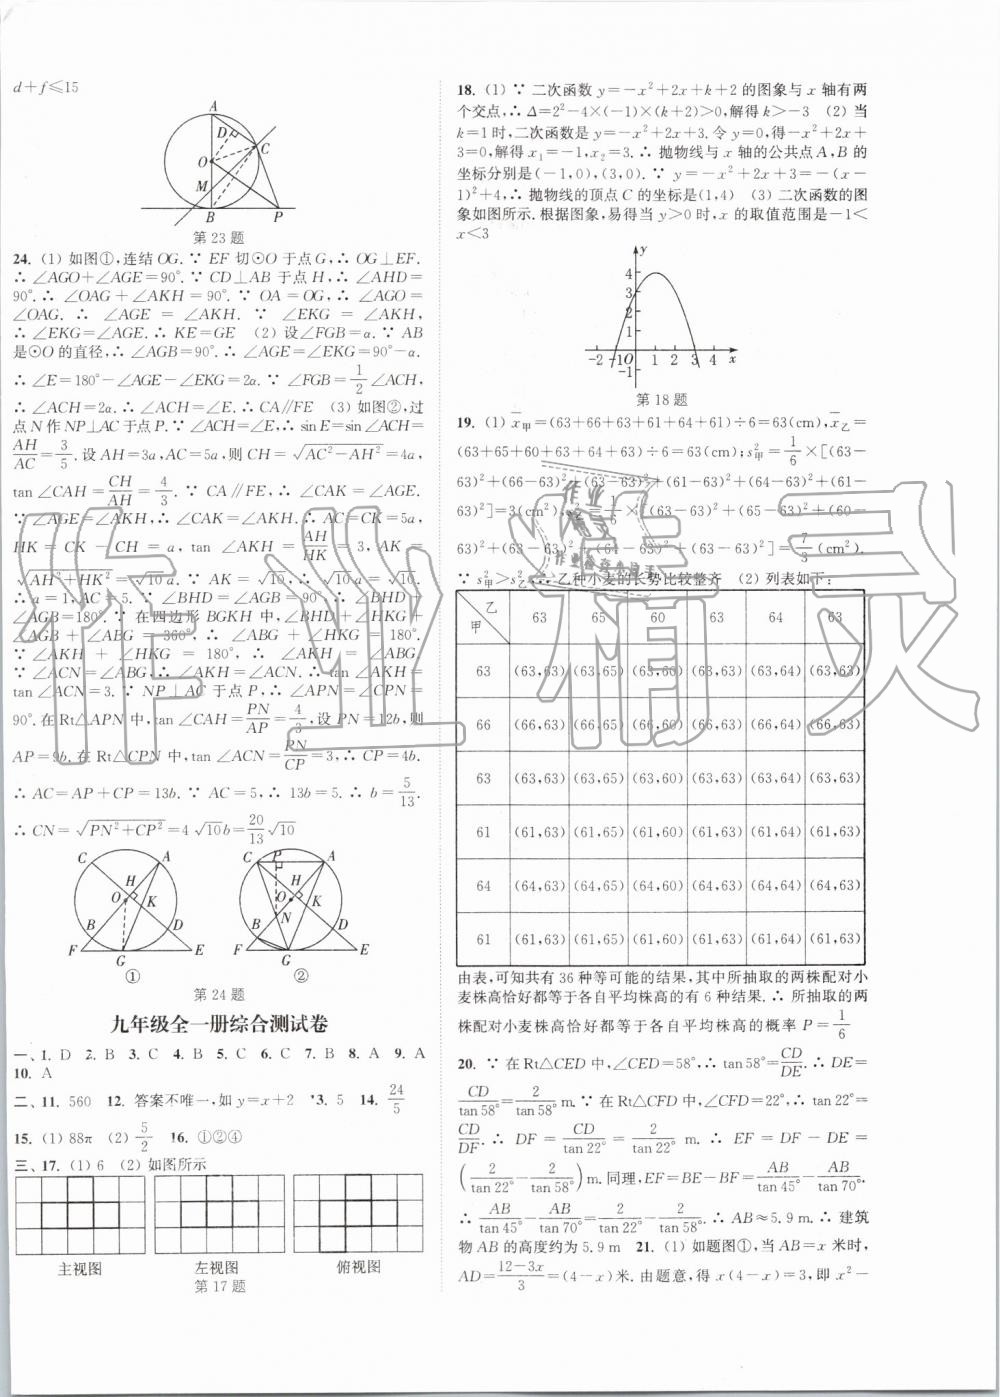 d+f≤15
A
D
C
O
M
B
P
第23题
24. (1) 如图①,连结OG. ∵ EF切⊙O于点G,∴ OG⊥EF.
∴ ∠AGO+∠AGE=90°. ∵ CD⊥AB于点H,∴ ∠AHD=
90°. ∴ ∠OAG+∠AKH=90°. ∵ OA=OG,∴ ∠AGO=
∠OAG. ∴ ∠AGE=∠AKH. ∵ ∠EKG=∠AKH,
∴ ∠EKG=∠AGE. ∴ KE=GE (2) 设∠FGB=α. ∵ AB
是⊙O的直径,∴ ∠AGB=90°. ∴ ∠AGE=∠EKG=90°-α.
∴ ∠E=180°-∠AGE-∠EKG=2α. ∵ ∠FGB=1/2∠ACH,
∴ ∠ACH=2α. ∴ ∠ACH=∠E. ∴ CA∥FE (3) 如图②,过
点N作NP⊥AC于点P. ∵ ∠ACH=∠E,∴ sin E=sin∠ACH=
AH/AC=3/5. 设AH=3a,AC=5a,则CH=√(AC²-AH²)=4a,
tan∠CAH=CH/AH=4/3. ∵ CA∥FE,∴ ∠CAK=∠AGE.
∵ ∠AGE=∠AKH,∴ ∠CAK=∠AKH. ∴ AC=CK=5a,
HK=CK-CH=a, tan∠AKH=AH/HK=3, AK=
√(AH²+HK²)=√10 a. ∵ AK=√10,∴ √10 a=√10.
∴ a=1,AC=5. ∵ ∠BHD=∠AGB=90°,∴ ∠BHD+
∠AGB=180°. ∴ 在四边形BGKH中,∠BHD+∠HKG+
∠AGB+∠ABG=360°. ∴ ∠ABG+∠HKG=180°.
∵ ∠AKH+∠HKG=180°, ∴ ∠AKH=∠ABG.
∵ ∠ACN=∠ABG,∴ ∠AKH=∠ACN. ∴ tan∠AKH=
tan∠ACN=3. ∵ NP⊥AC于点P,∴ ∠APN=∠CPN=
90°. 在Rt△APN中,tan∠CAH=PN/AP=4/3,设PN=12b,则
AP=9b. 在Rt△CPN中,tan∠ACN=PN/CP=3,∴ CP=4b.
∴ AC=AP+CP=13b. ∵ AC=5,∴ 13b=5. ∴ b=5/13.
∴ CN=√(PN²+CP²)=4√10b=20/13√10
C A H O K B D F G E
①
C P A H O K N B D F G E
②
第24题
九年级全一册综合测试卷
一、1. D 2. B 3. C 4. B 5. C 6. C 7. B 8. A 9. A
10. A
二、11. 560 12. 答案不唯一,如y=x+2 13. 5 14. 24/5
15. (1) 88π (2) 5/2 16. ①②④
三、17. (1) 6 (2) 如图所示
主视图 左视图 俯视图
第17题
18. (1) ∵ 二次函数y=-x²+2x+k+2的图象与x轴有两
个交点,∴ Δ=2²-4×(-1)×(k+2)>0,解得k>-3 (2) 当
k=1时,二次函数是y=-x²+2x+3. 令y=0,得-x²+2x+
3=0,解得x₁=-1,x₂=3. ∴ 抛物线与x轴的公共点A,B的
坐标分别是(-1,0),(3,0). ∵ y=-x²+2x+3=-(x-
1)²+4,∴ 抛物线的顶点C的坐标是(1,4) (3) 二次函数的图
象如图所示. 根据图象,易得当y>0时,x的取值范围是-1<
x<3
y
4
3
2
1
-2 -1 O 1 2 3 4 x
-1
第18题
19. (1) x̄甲=(63+66+63+61+64+61)÷6=63(cm),x̄乙=
(63+65+60+63+64+63)÷6=63(cm);s²甲=1/6×[(63-
63)²+(66-63)²+(63-63)²+(61-63)²+(64-63)²+(61-
63)²]=3(cm²),s²乙=1/6×[(63-63)²+(65-63)²+(60-
63)²+(63-63)²+(64-63)²+(63-63)²]=7/3(cm²).
∵ s²甲>s²乙,∴ 乙种小麦的长势比较整齐 (2) 列表如下:
甲 乙 63 65 60 63 64 63
63 (63,63) (63,65) (63,60) (63,63) (63,64) (63,63)
66 (66,63) (66,65) (66,60) (66,63) (66,64) (66,63)
63 (63,63) (63,65) (63,60) (63,63) (63,64) (63,63)
61 (61,63) (61,65) (61,60) (61,63) (61,64) (61,63)
64 (64,63) (64,65) (64,60) (64,63) (64,64) (64,63)
61 (61,63) (61,65) (61,60) (61,63) (61,64) (61,63)
由表,可知共有36种等可能的结果,其中所抽取的两株配对小
麦株高恰好都等于各自平均株高的有6种结果. ∴ 所抽取的两
株配对小麦株高恰好都等于各自平均株高的概率P=1/6
20. ∵ 在Rt△CED中,∠CED=58°,∴ tan 58°=CD/DE. ∴ DE=
CD/tan 58°=2/tan 58° m. ∵ 在Rt△CFD中,∠CFD=22°,∴ tan 22°=
CD/DF. ∴ DF=CD/tan 22°=2/tan 22° m. ∴ EF=DF-DE=
(2/tan 22°-2/tan 58°)m. 同理,EF=BE-BF=AB/tan 45°-AB/tan 70°.
∴ AB/tan 45°-AB/tan 70°=2/tan 22°-2/tan 58°. ∴ AB≈5.9 m. ∴ 建筑
物AB的高度约为5.9 m 21. (1) 如题图①,当AB=x米时,
AD=(12-3x)/3=(4-x)米. 由题意,得x(4-x)=3,即x²-
作业精灵